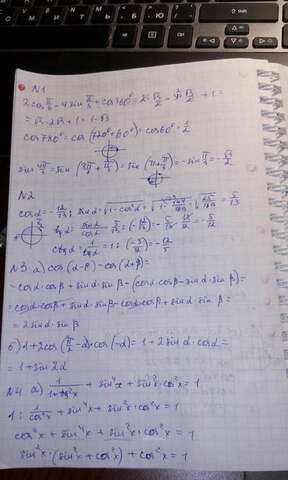 N1
2cos π/6 - 4 sin π/3 + cos 360° = 2·√3/2 - 4·√3/2 + 1 =
= √3 - 2√3 + 1 = 1 - √3
cos 780° = cos (720° + 60°) = cos 60° = 1/2
sin 4π/3 = sin (3π/3 + π/3) = sin (π + π/3) = -sin π/3 = -√3/2
N2
cos α = -12/13; sin α = √1 - cos²α = √1 - 144/169 = √25/169 = 5/13
tg α = sin α/cos α = 5/13 : (-12/13) = -5/13 · 13/12 = -5/12
ctg α = 1/tg α = 1 : (-5/12) = -12/5
N3 a) cos (α-β) - cos (α+β) =
= cos α·cos β + sin α·sin β - (cos α·cos β - sin α·sin β) =
= cos α·cos β + sin α·sin β - cos α·cos β + sin α·sin β =
= 2 sin α·sin β
б) 1 + 2cos (π/2 - α)·cos (-α) = 1 + 2 sin α·cos α =
= 1 + sin 2α
N4 a) 1/1+tg²x + sin⁴x + sin²x·cos²x = 1
1/cos²x + sin⁴x + sin²x·cos²x = 1
cos²x + sin⁴x + sin²x·cos²x = 1
sin²x·(sin²x + cos²x) + cos²x = 1